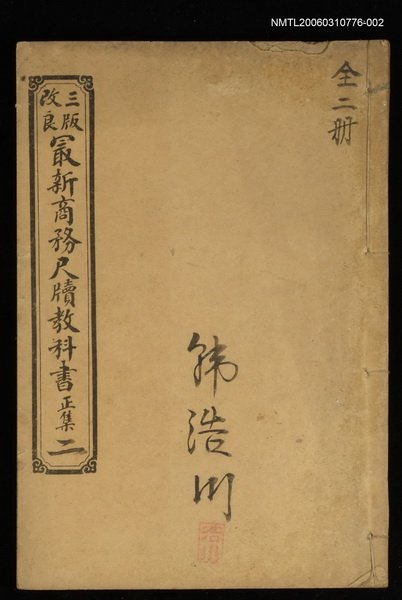 NMTL20060310776-002
全二册
韩浩川
三版
改良
最新商務尺牘教科書正集二